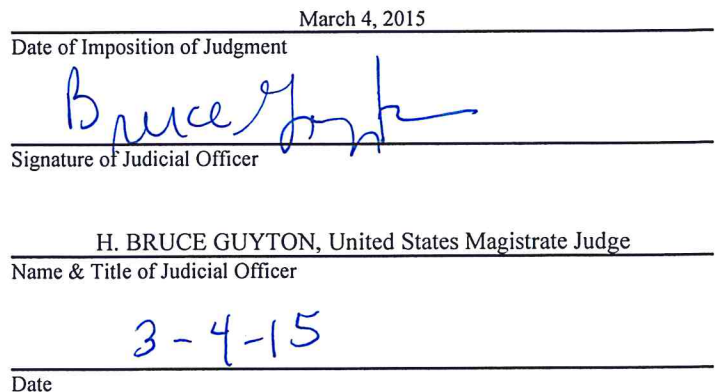 March 4, 2015
Date of Imposition of Judgment
Bruce Guyton
Signature of Judicial Officer
H. BRUCE GUYTON, United States Magistrate Judge
Name & Title of Judicial Officer
3-4-15
Date